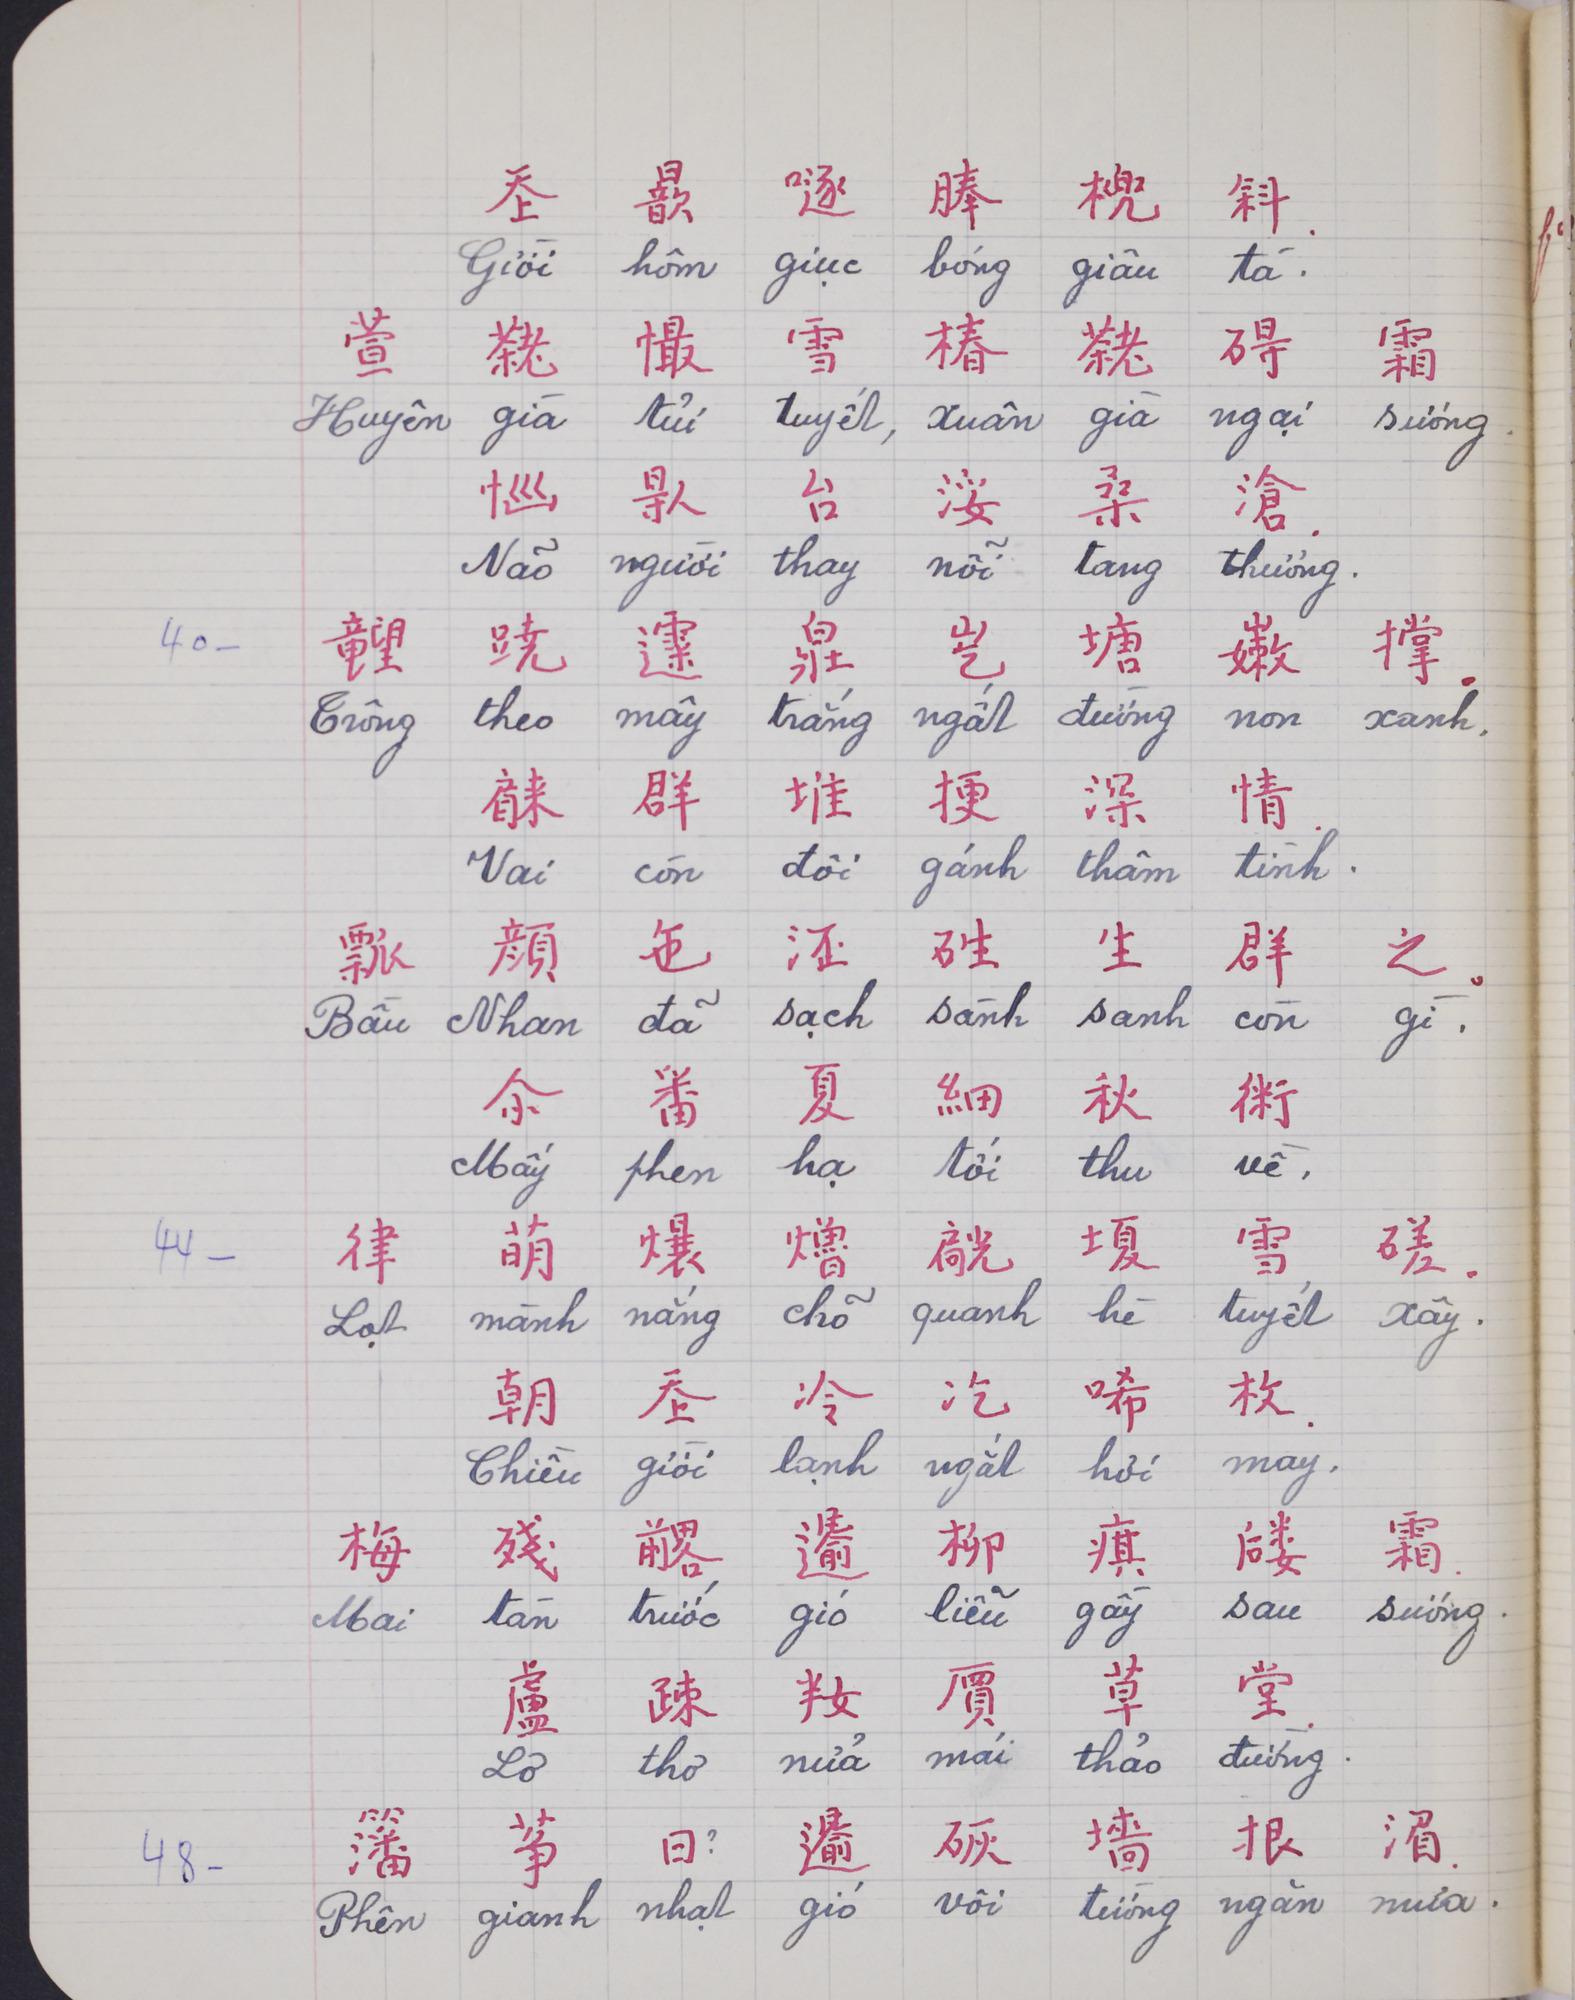 𡗶 歆 𠿚 𦢳 槐 斜.
Giời hôm giục bóng giâu tà.
萱 𦓅 㥨 雪 椿 𦓅 碍 霜
Huyên già tủi tuyết, xuân già ngại sương.
台 桑 滄.
Não người thay nỗi tang thương.
40-
塘 嫩 撑.
Trông theo mây trắng ngất đường non xanh.
群 堆 挭 深 情.
Vai còn đôi gánh thâm tình.
瓢 顔 㐌 泟 硅 生 群 之.
Bầu Nhan đã sạch sành sanh còn gì.
尒 番 夏 細 秋 術
Mấy phen hạ tới thu về.
44-
律 萌 𤓢 雪 磋.
Lọt mành nắng chỗ quanh hè tuyết xây.
朝 𡗶 冷 汔 唏 枚.
Chiều giời lạnh ngắt hơi may.
梅 残 柳 霜.
Mai tàn trước gió liễu gầy sau sương.
盧 疎 𡛤 草 堂.
Lơ thơ nửa mái thảo đường.
48-
筝 日? 墻 拫 湄.
Phên gianh nhạt gió vôi tường ngăn mưa.